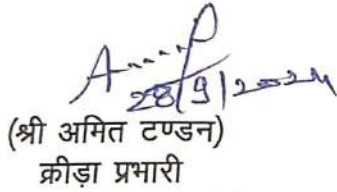 28/9/2024
(श्री अमित टण्डन)
क्रीड़ा प्रभारी